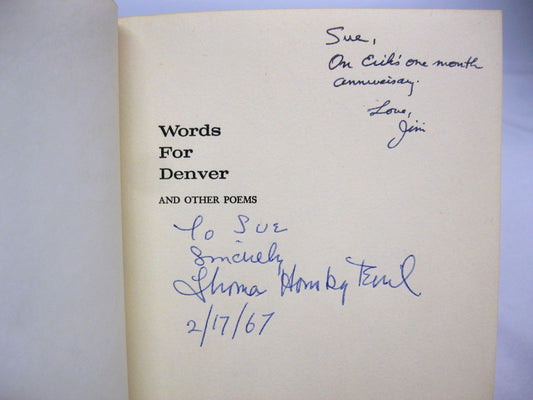 Sue,
On Erik's one month
anniversary.
Love,
Jim
Words
For
Denver
AND OTHER POEMS
To Sue
Sincerely
Thomas Hornsby Ferril
2/17/67